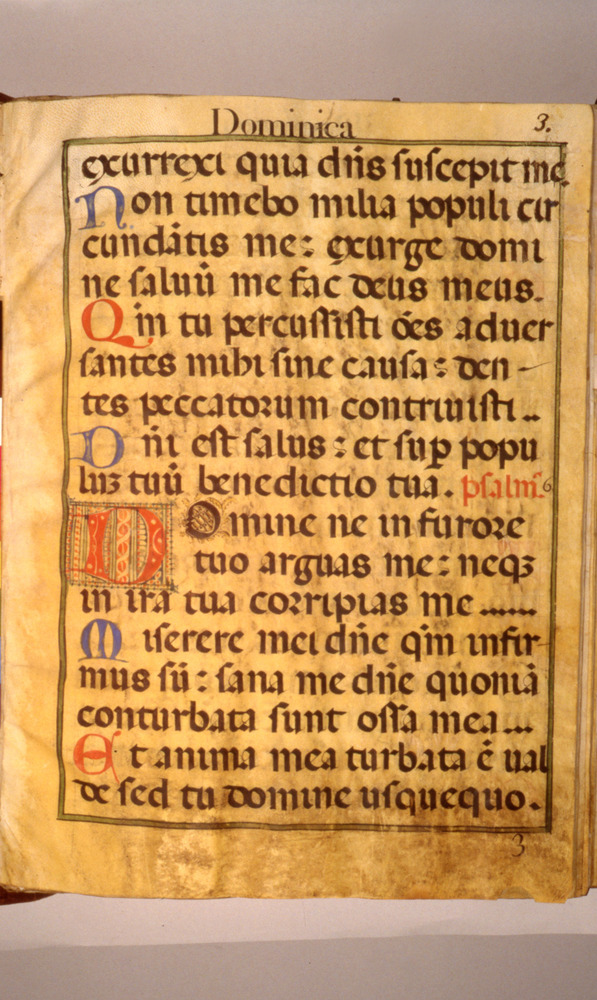 Dominica
3.
exurrexi quia dñs suscepit me.
Non timebo milia populi cir
cundãtis me: exurge domi
ne saluũ me fac deus meus.
Qm̃ tu percussisti oẽs aduer
santes mihi sine causa: den-
tes peccatorum contriuisti..
Dñi est salus: et suꝑ popu
luꝫ tuũ benedictio tua. psalm̃9 6
Domine ne in furore
tuo arguas me: neqꝫ
in ira tua corripias me......
Miserere mei dñe qm̃ infir
mus sũ: sana me dñe quoniã
conturbata sunt ossa mea...
Et anima mea turbata ẽ ual
de sed tu domine usquequo.
3